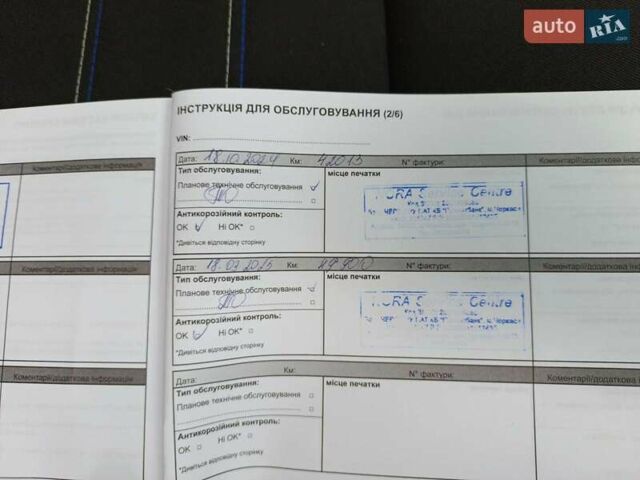 auto RIA.com
ІНСТРУКЦІЯ ДЛЯ ОБСЛУГОВУВАННЯ (2/6)
VIN:
Коментарі/додаткова інформація
Дата: 18.10.2024 Км: 42013 N° фактури: Коментарі/додатко
Тип обслуговування: місце печатки
Планове технічне обслуговування
ТО
Антикорозійний контроль:
ОК Ні ОК*
*Дивіться відповідну сторінку
Service Centre
м. Черкаси
Коментарі/додаткова інформація
Дата: 18.07.2025 Км: 49900 N° фактури: Коментарі/додатко
Тип обслуговування: місце печатки
Планове технічне обслуговування
ТО
Антикорозійний контроль:
ОК Ні ОК*
*Дивіться відповідну сторінку
Centre
м. Черкаси
Коментарі/додаткова інформація
Дата: Км: N° фактури: Коментарі/додатко
Тип обслуговування: місце печатки
Планове технічне обслуговування
Антикорозійний контроль:
ОК Ні ОК*
*Дивіться відповідну сторінку